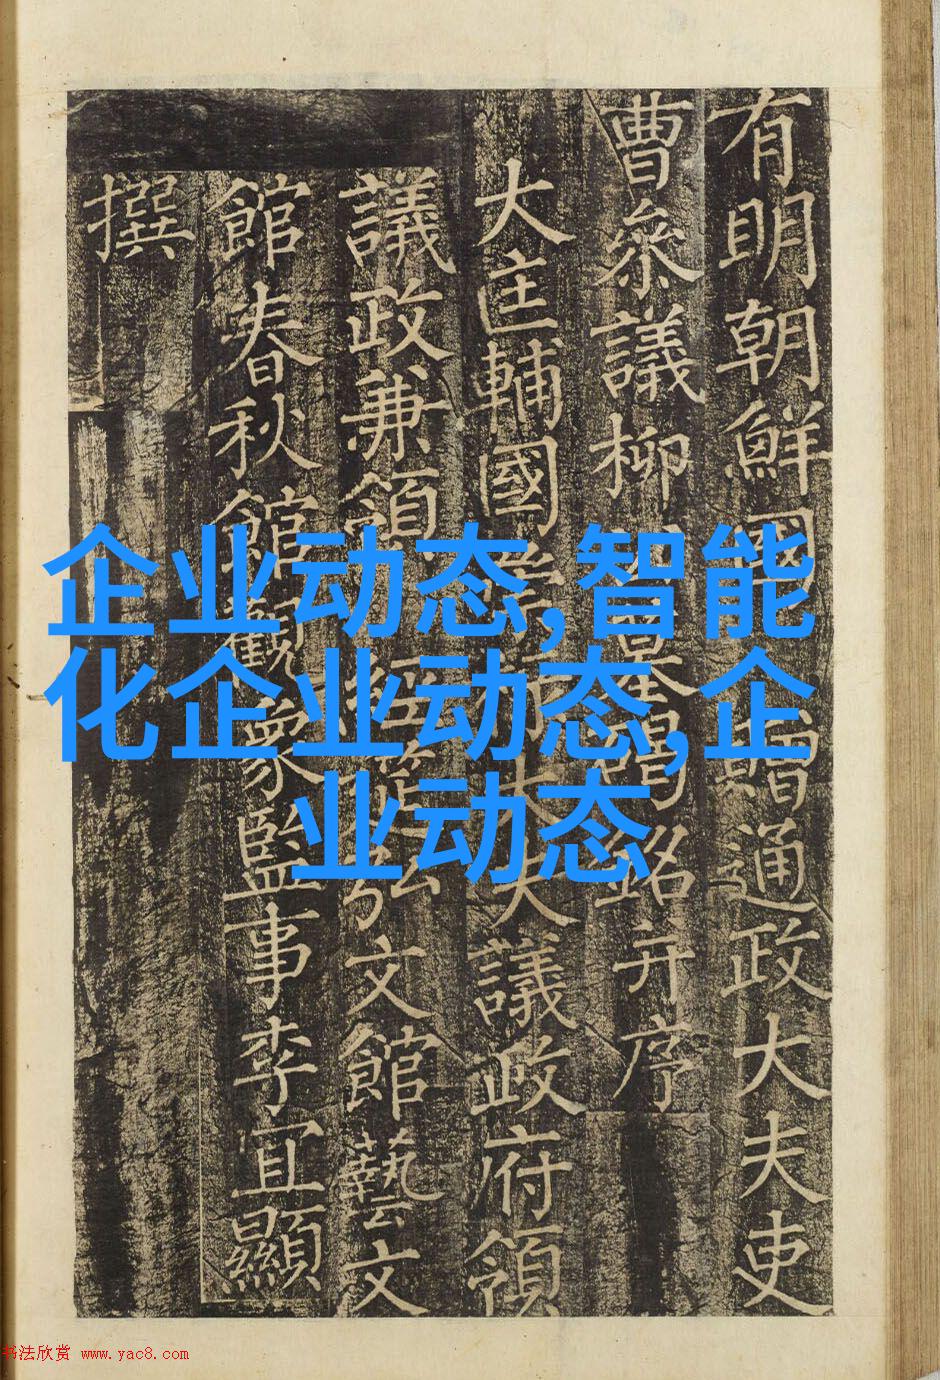 有明朝鮮國贈通政大夫吏
曹叅議柳墓碣銘并序
大匡輔國崇祿大夫議政府領
議政兼領經筵弘文館藝文
館春秋館觀象監事李宜顯
撰
企业动态,智能
化企业动态,企
业动态
书法欣赏 www.yac8.com